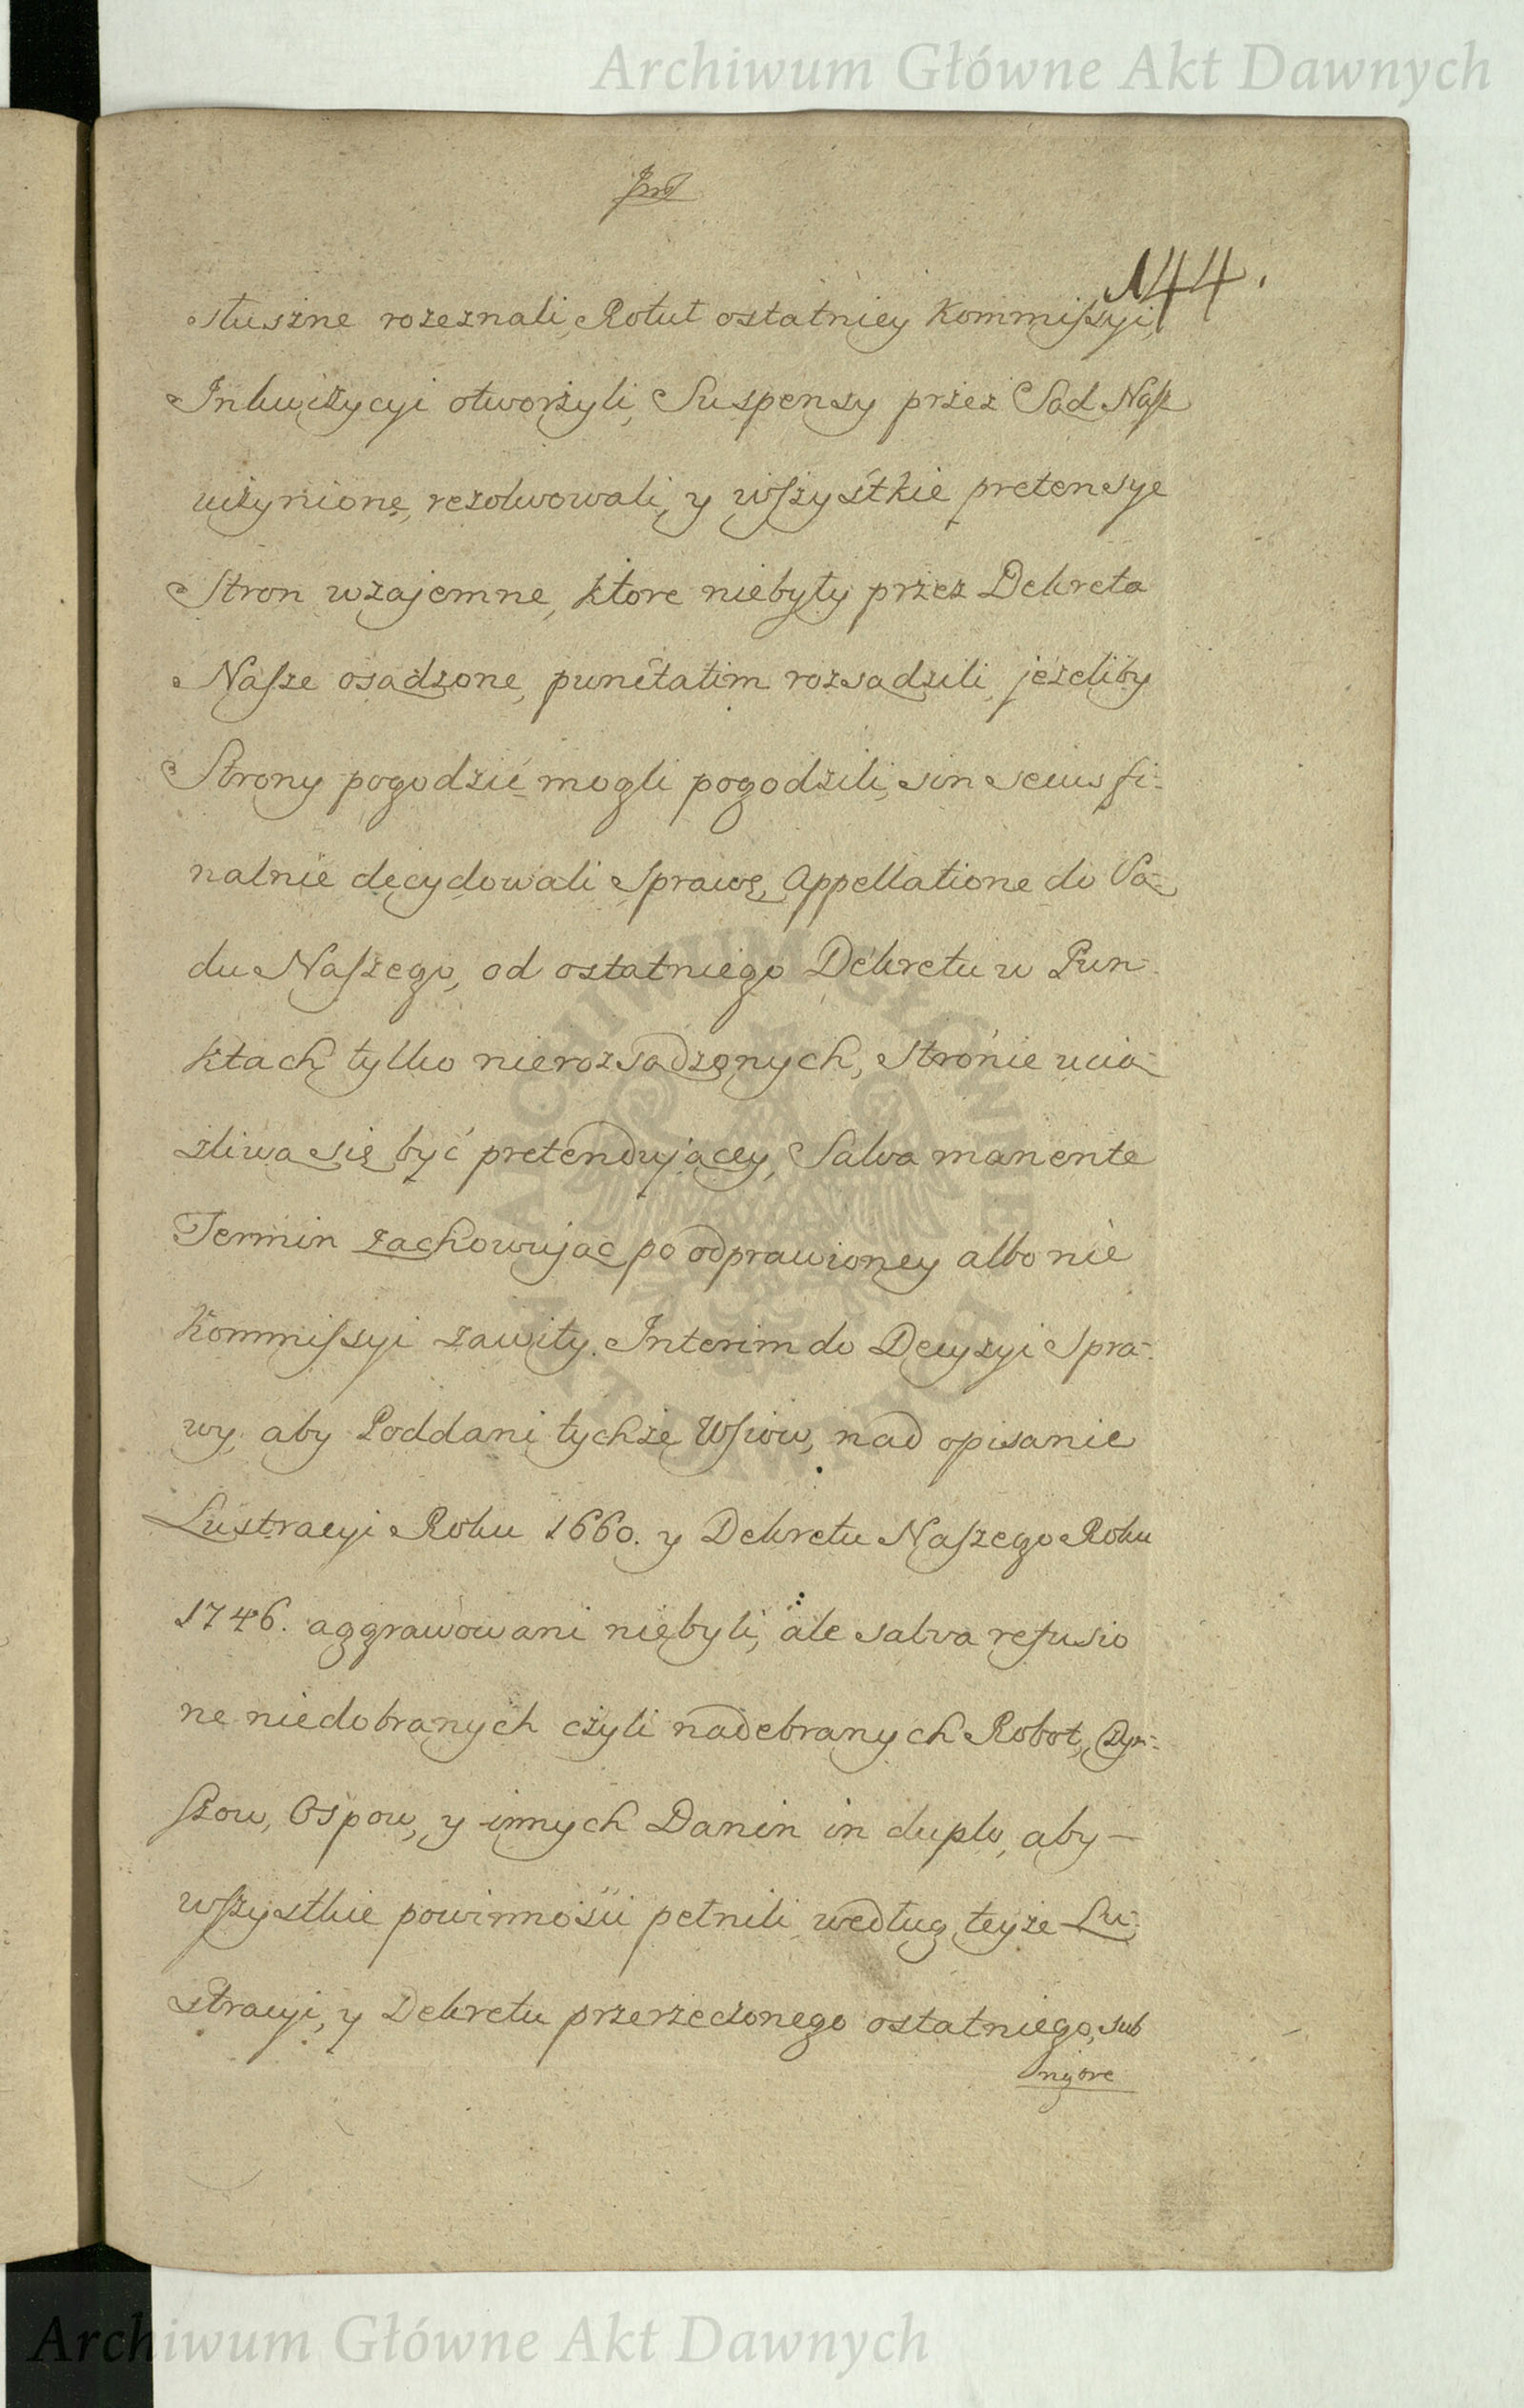 Archiwum Główne Akt Dawnych
144.
słuszne rozeznali, Rotuł ostatniey Kommissyi,
Inkwizycyi otworzyli, Suspensy przez Sąd Nasz
uczynione, rezolwowali, y wszystkie pretensye
Stron wzajemne, ktore niebyły przez Dekreta
Nasze osądzone, punctatim rozsądzili, jeżeliby
Strony pogodzić mogli pogodzili, sin secus fi-
nalnie decydowali sprawę, Appellatione do Są-
du Naszego, od ostatniego Dekretu w Pun-
ktach tylko nierozsądzonych, stronie ucią-
żliwą się być pretendującey, Salva manente
Termin zachowując po odprawioney albo nie
Kommissyi zawity. Interim do Decyzyi Spra-
wy, aby Poddani tychże Wsiow, nad opisanie
Lustracyi Roku 1660. y Dekretu Naszego Roku
1746. aggrawowani niebyli, ale salva refusio
ne niedobranych czyli nadebranych Robot, Czyn-
szow, Ospow, y innych Danin in duplo, aby —
wszystkie powinności pełnili według teyże Lu-
stracyi, y Dekretu przerzeczonego ostatniego, sub
rigore
ARCHIWUM GŁÓWNE AKT DAWNYCH
Archiwum Główne Akt Dawnych